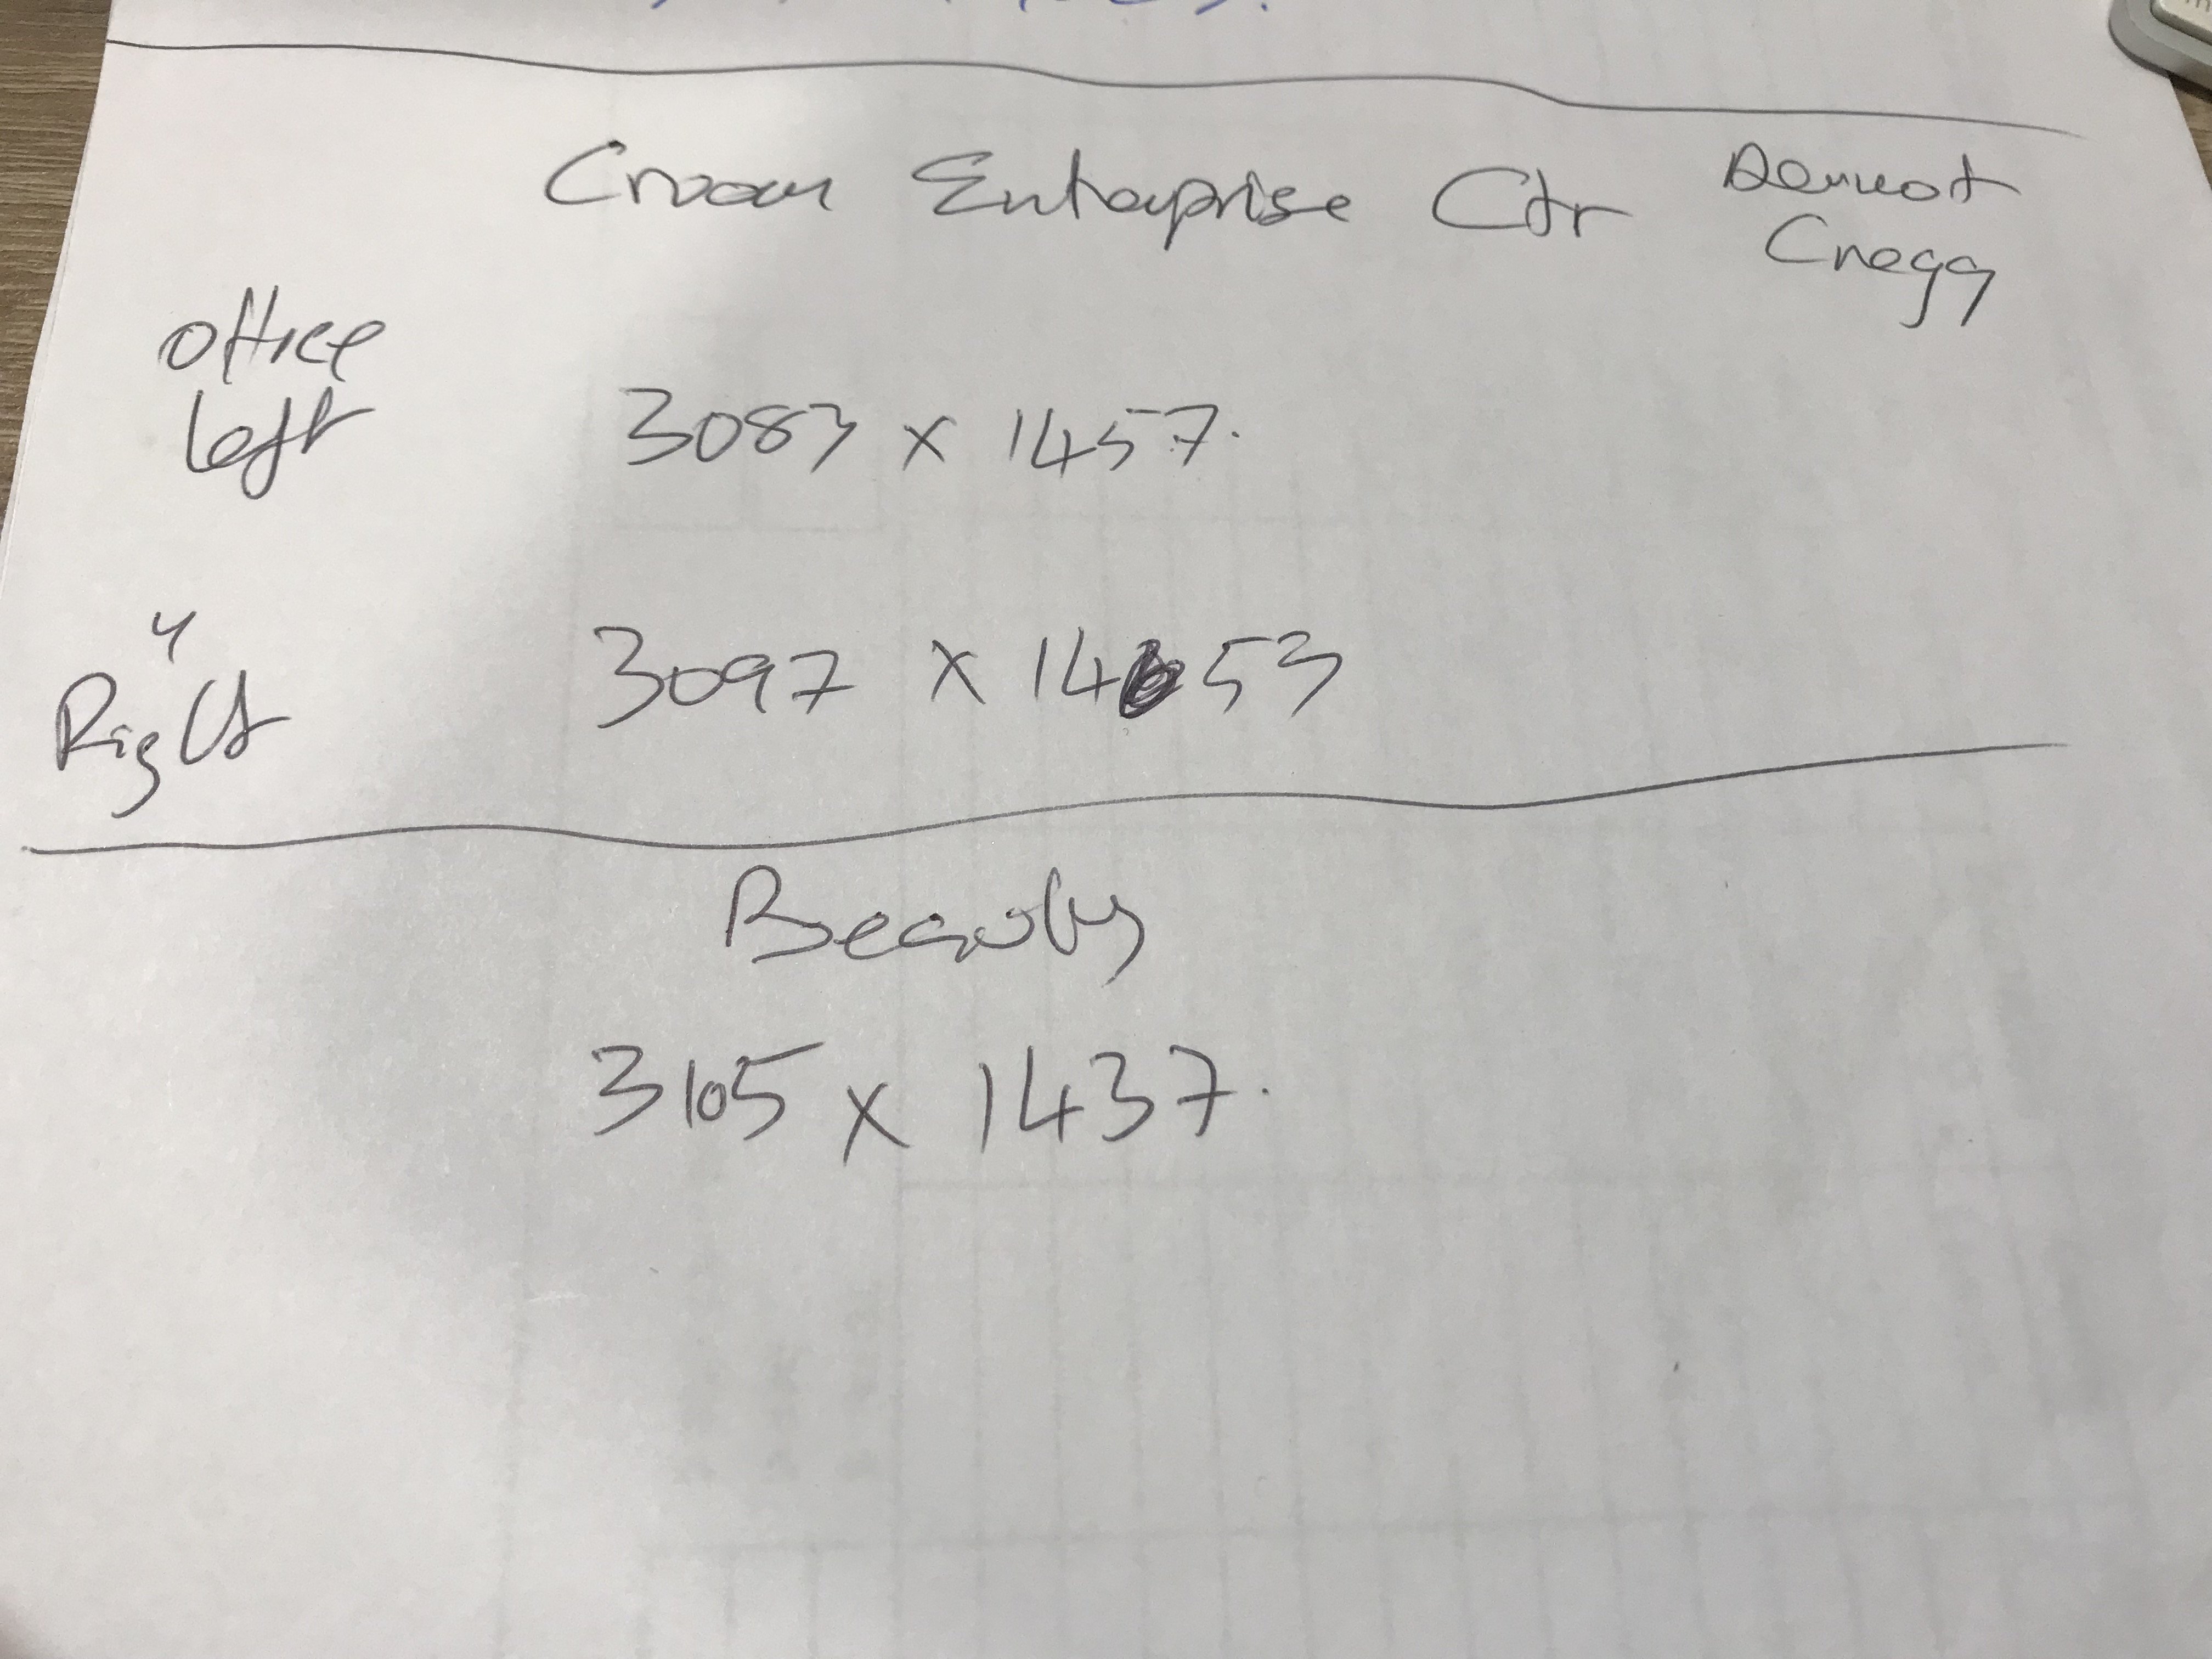 Croom Enterprise Ctr Dermot
Cregg
Office
Left 3083 x 1457.
"
Right 3097 x 1453
Beauty
3105 x 1437.